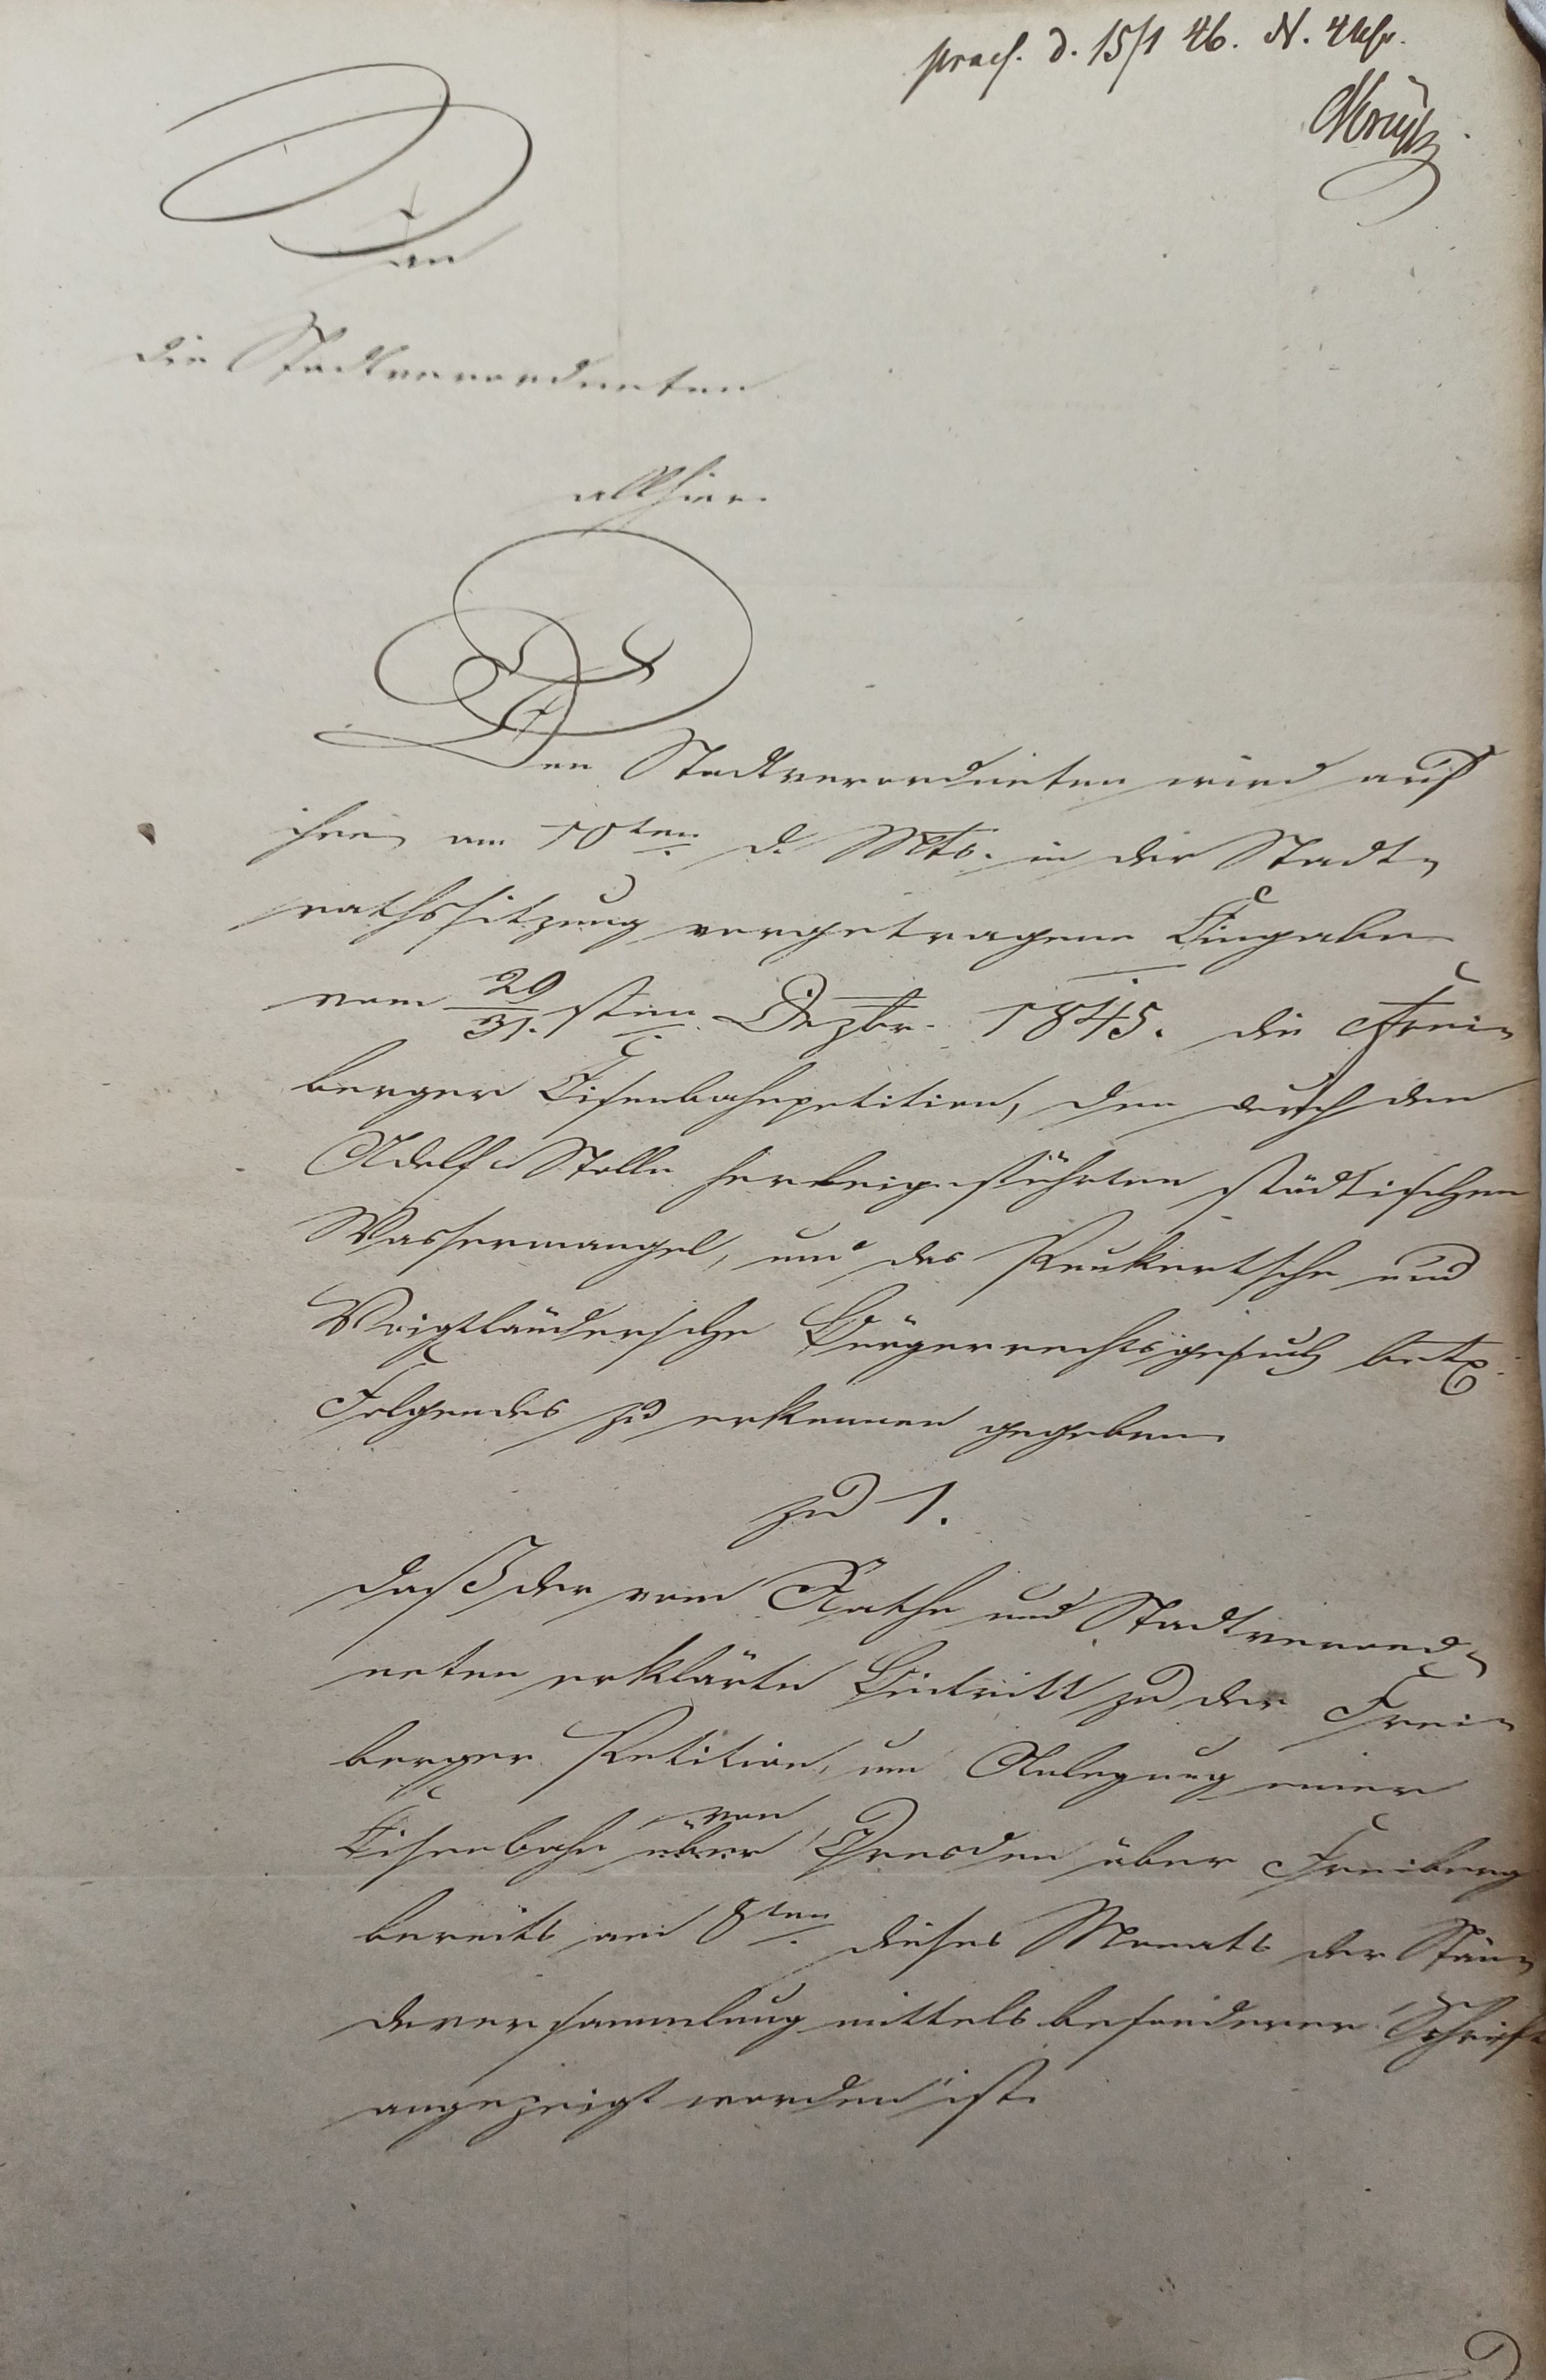 praes. d. 15/1 46. N. 4 Uhr.
An
die Stadtverordneten
allhier.
Den Stadtverordneten wird auf
ihre am 10ten d. Mts. in der Stadt-
rathssitzung vorgetragene Eingabe
vom 29/31. sten Dezbr. 1845. die Frei-
berger Eisenbahnpetition, den durch den
Adolf Stolln herbeigeführten städtischen
Wassermangel, und das Peukertsche und
Voigtländersche Bürgerrechtsgesuch betr.
Folgendes zu erkennen gegeben
zu 1.
daß der vom Rathe und Stadtverord-
neten erklärte Beitritt zu der Frei-
berger Petition, um Anlegung einer
Eisenbahn über von Dresden über Freiberg
bereits am 8ten dieses Monats der Stän-
deversammlung mittels besonderer Schrift
angezeigt worden ist.